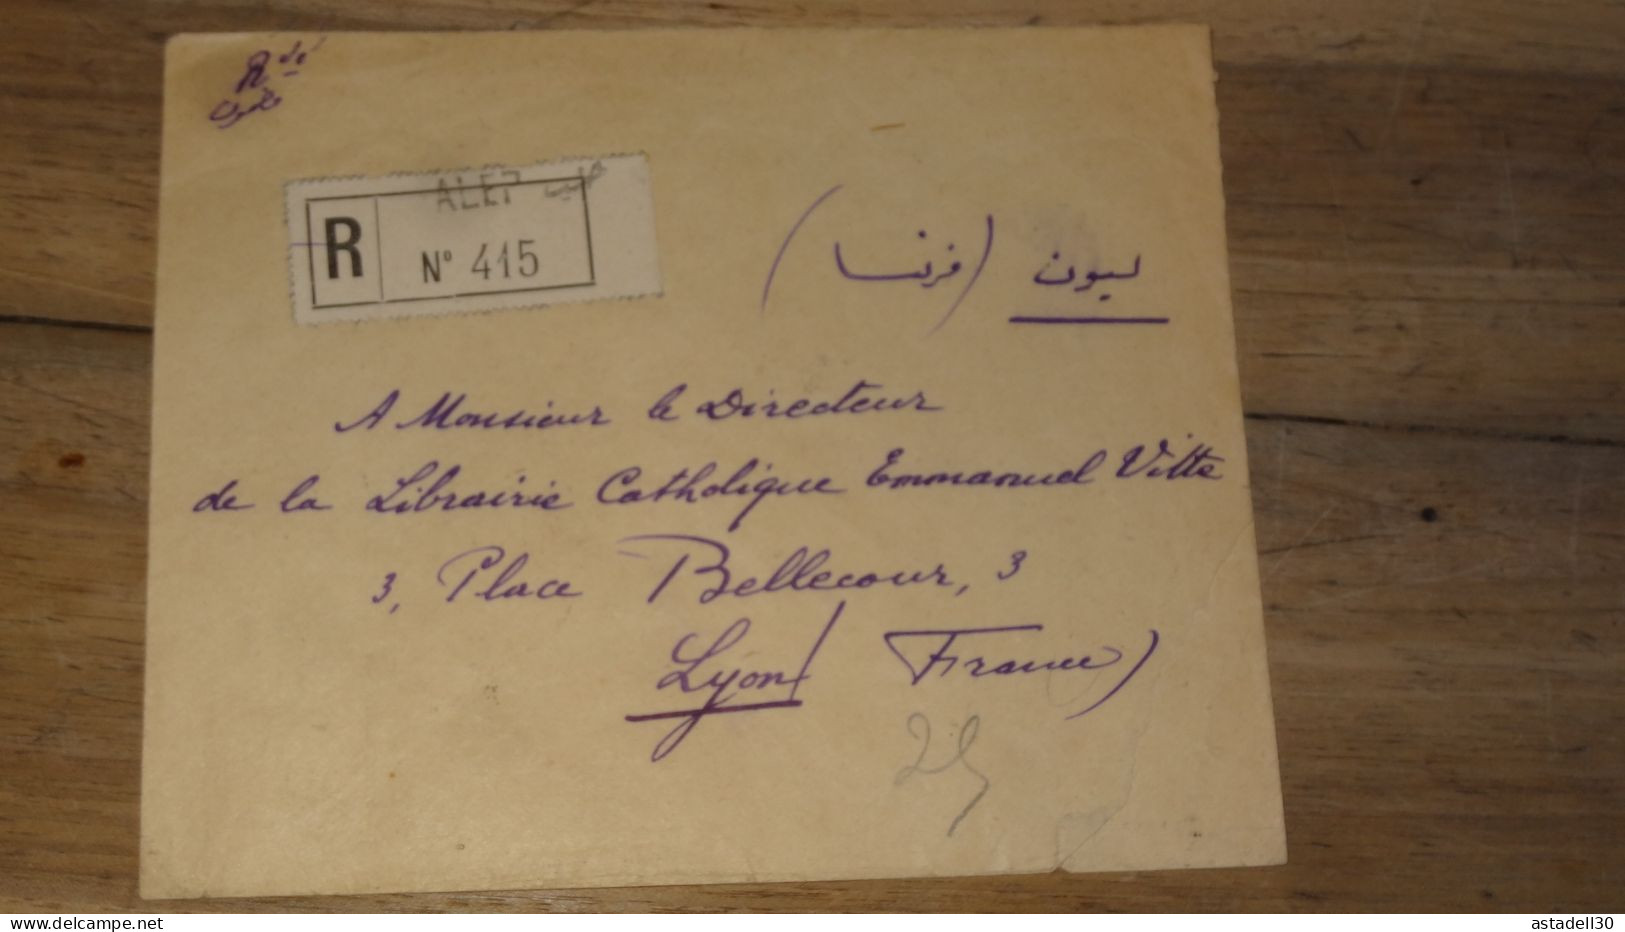 Rdé
مضمون
ALEP حلب
R
N° 415
ليون (فرنسا)
A Monsieur le Directeur
de la Librairie Catholique Emmanuel Vitte
3, Place Bellecour, 3
Lyon (France)
25
www.delcampe.net
astadell30